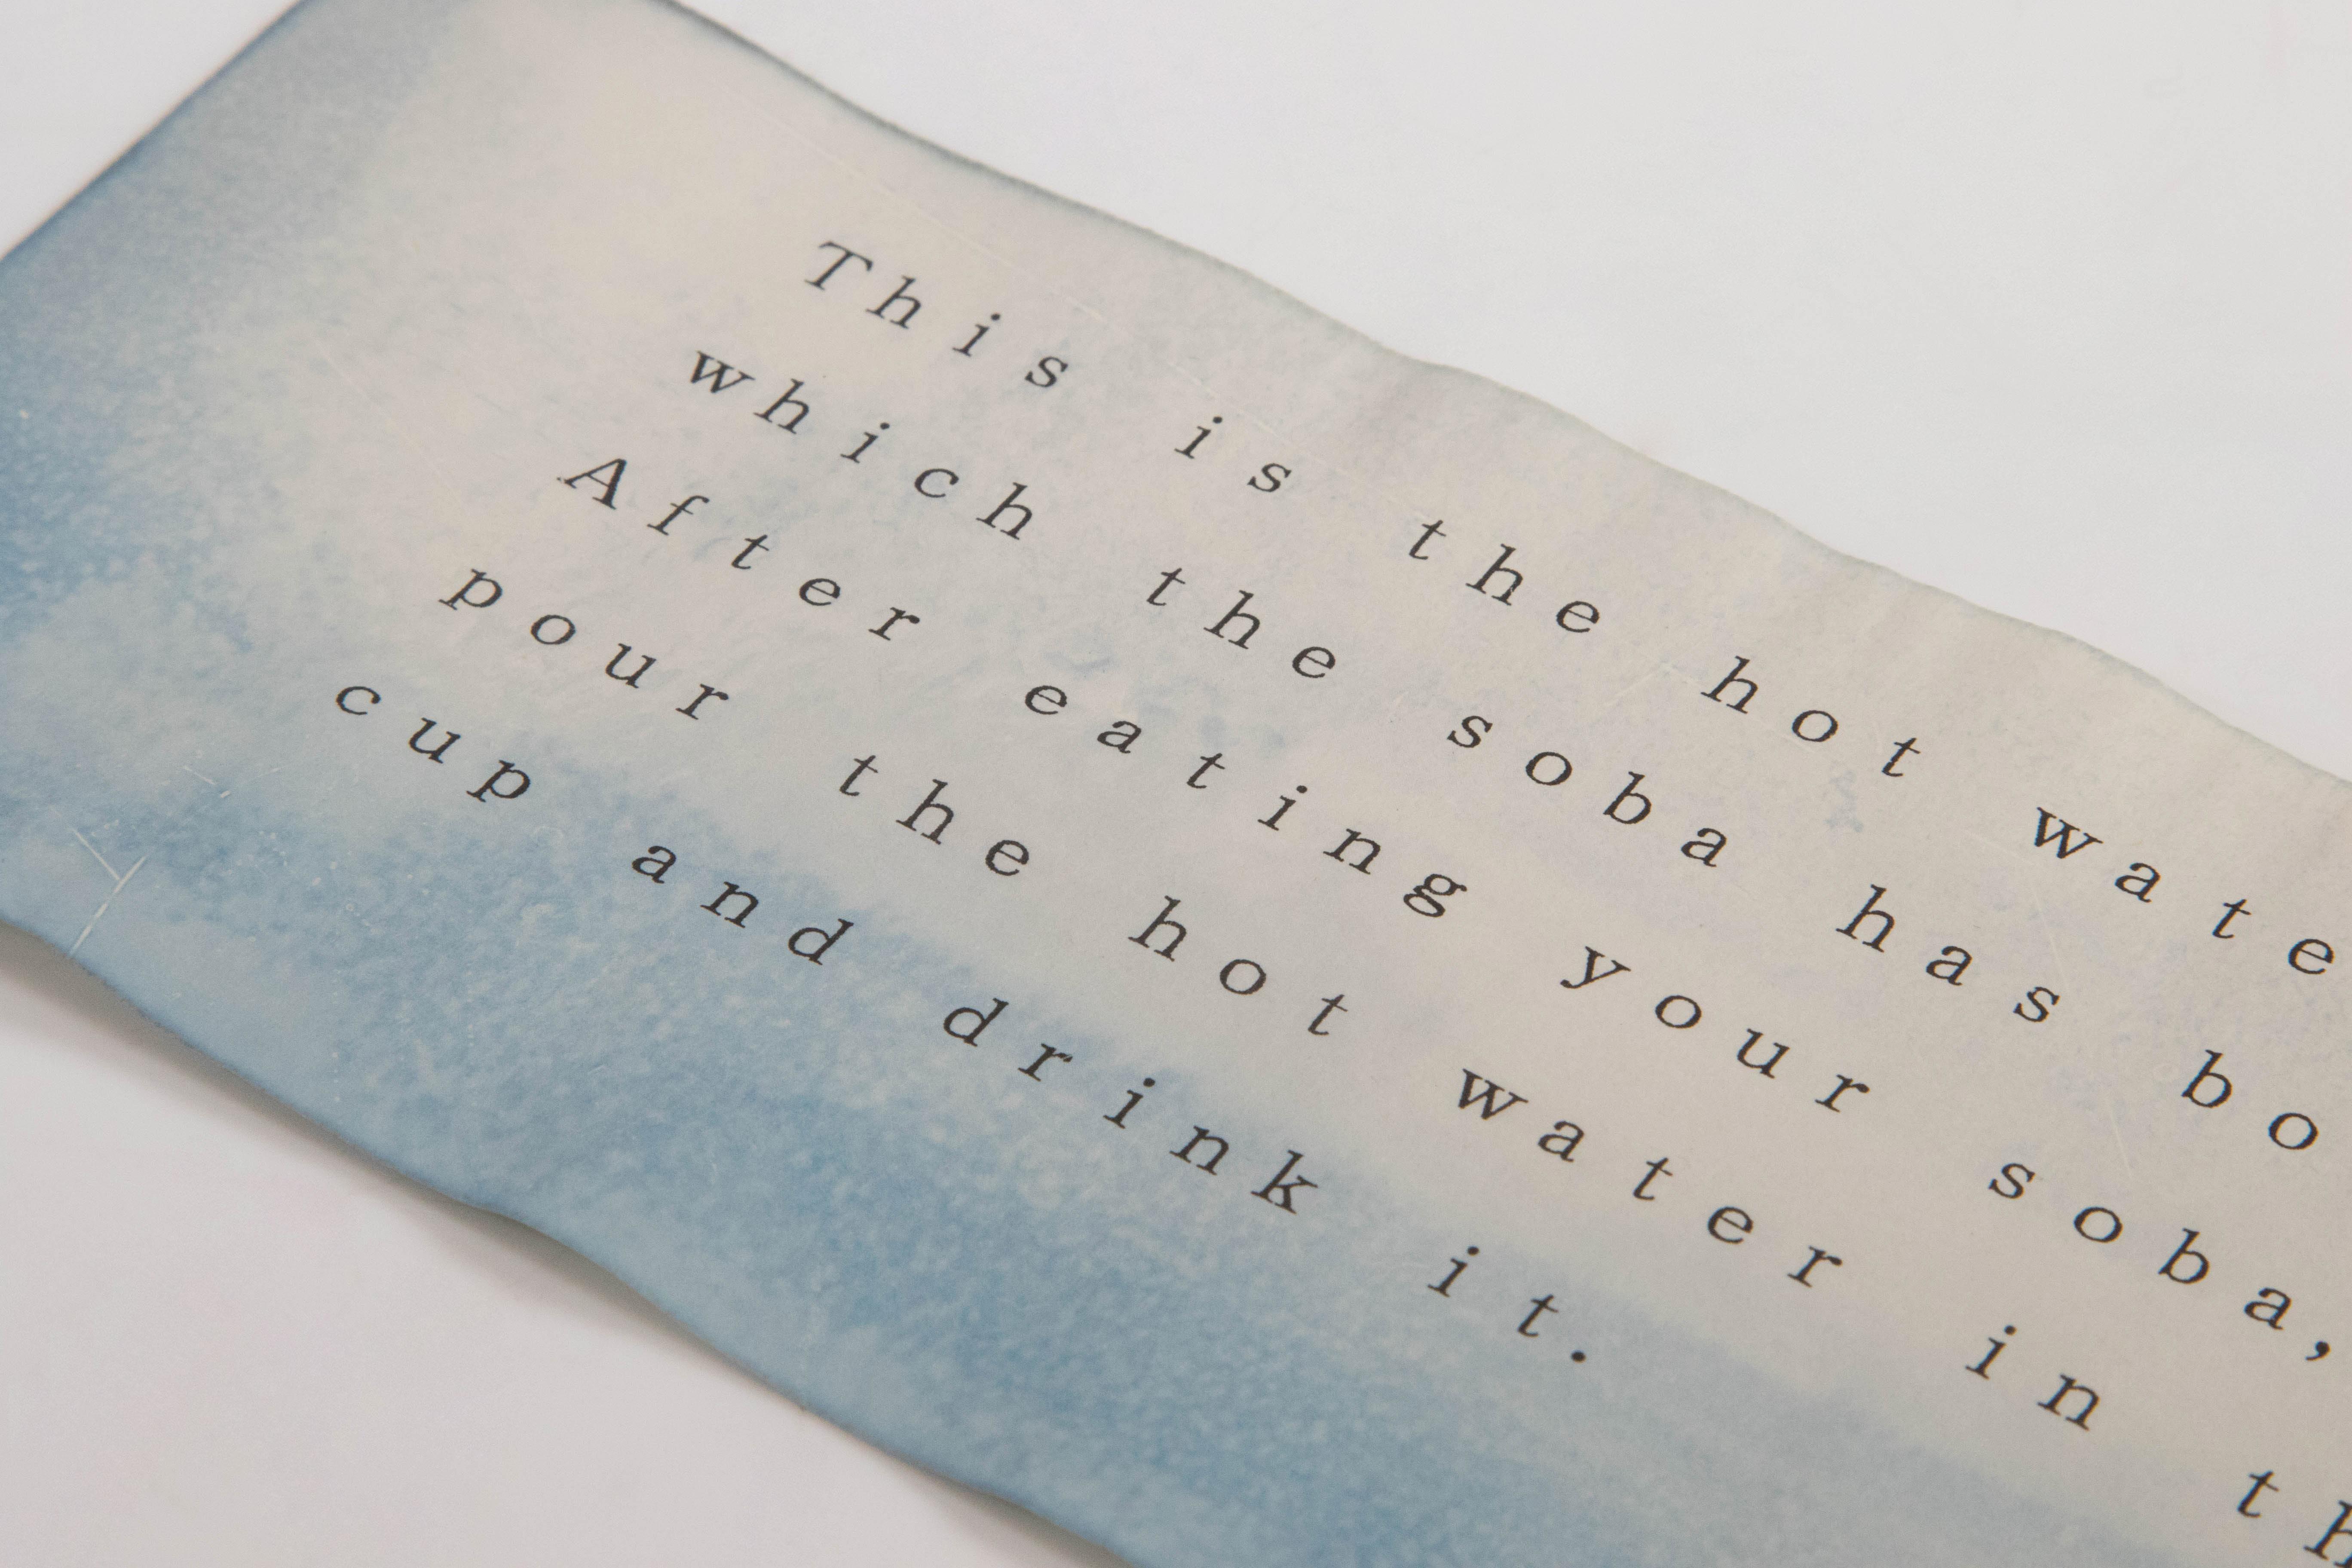 This is the hot wate
which the soba has bo
After eating your soba,
pour the hot water in th
cup and drink it.